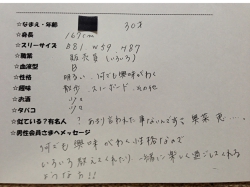 ☆なまえ・年齢 30才
☆身長 167cm
☆スリーサイズ B81 W59 H87
☆職業 販売員(いろいろ)
☆血液型 B
☆性格 明るい 何でも興味がわく
☆趣味 散歩 スノーボード その他
☆お酒
☆タバコ
☆似ている?有名人 ? あまり言われた事ないんですが 栗菜 恵…。
☆男性会員さまへメッセージ
何でも興味がわく性格なので
いろいろ教えてくれたり 一緒に楽しく過ごしてくれる